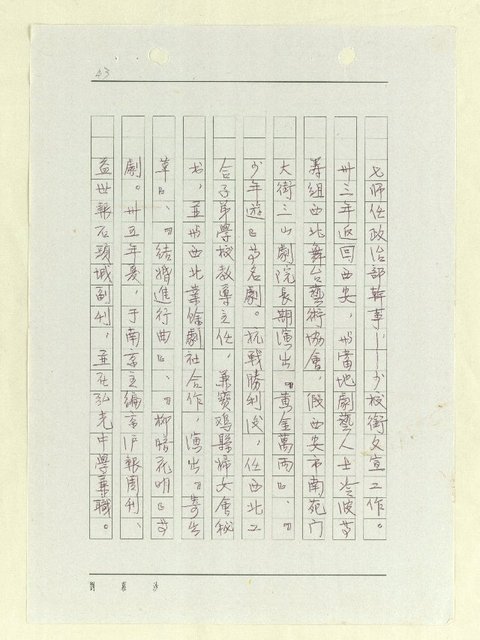 43
七師任政治部幹事，——少校銜文宣工作。
卅三年返回西安，与當地劇藝人士冷波等
籌組西北舞台藝術協會，假西安市南苑门
大街之山劇院長期演出『黃金萬两』、『
少年遊』等名劇。抗戰勝利後，任西北工
合子弟學校教導主任，兼寶鷄縣婦女會秘
书，並与西北業餘劇社合作，演出『寄生
草』、『結婚進行曲』、『柳暗花明』等
劇。卅五年夏，于南京主編京沪報周刊、
益世報石頭城副刊，並在弘光中學兼職。
劉慕沙